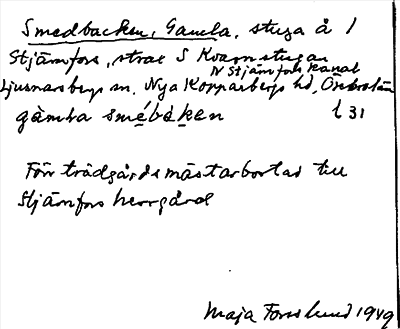 Smedbacken, Gamla, stuga å 1
Stjärnfors, strax S Kvarnstugan
N Stjärnfors kanal
Ljusnarsbergs sn, Nya Kopparbergs hd, Örebro län
gàmħa smé̱bàḵen t 31
För trädgårdsmästarbostad till
Stjärnfors herrgård
Maja Forslund 1949